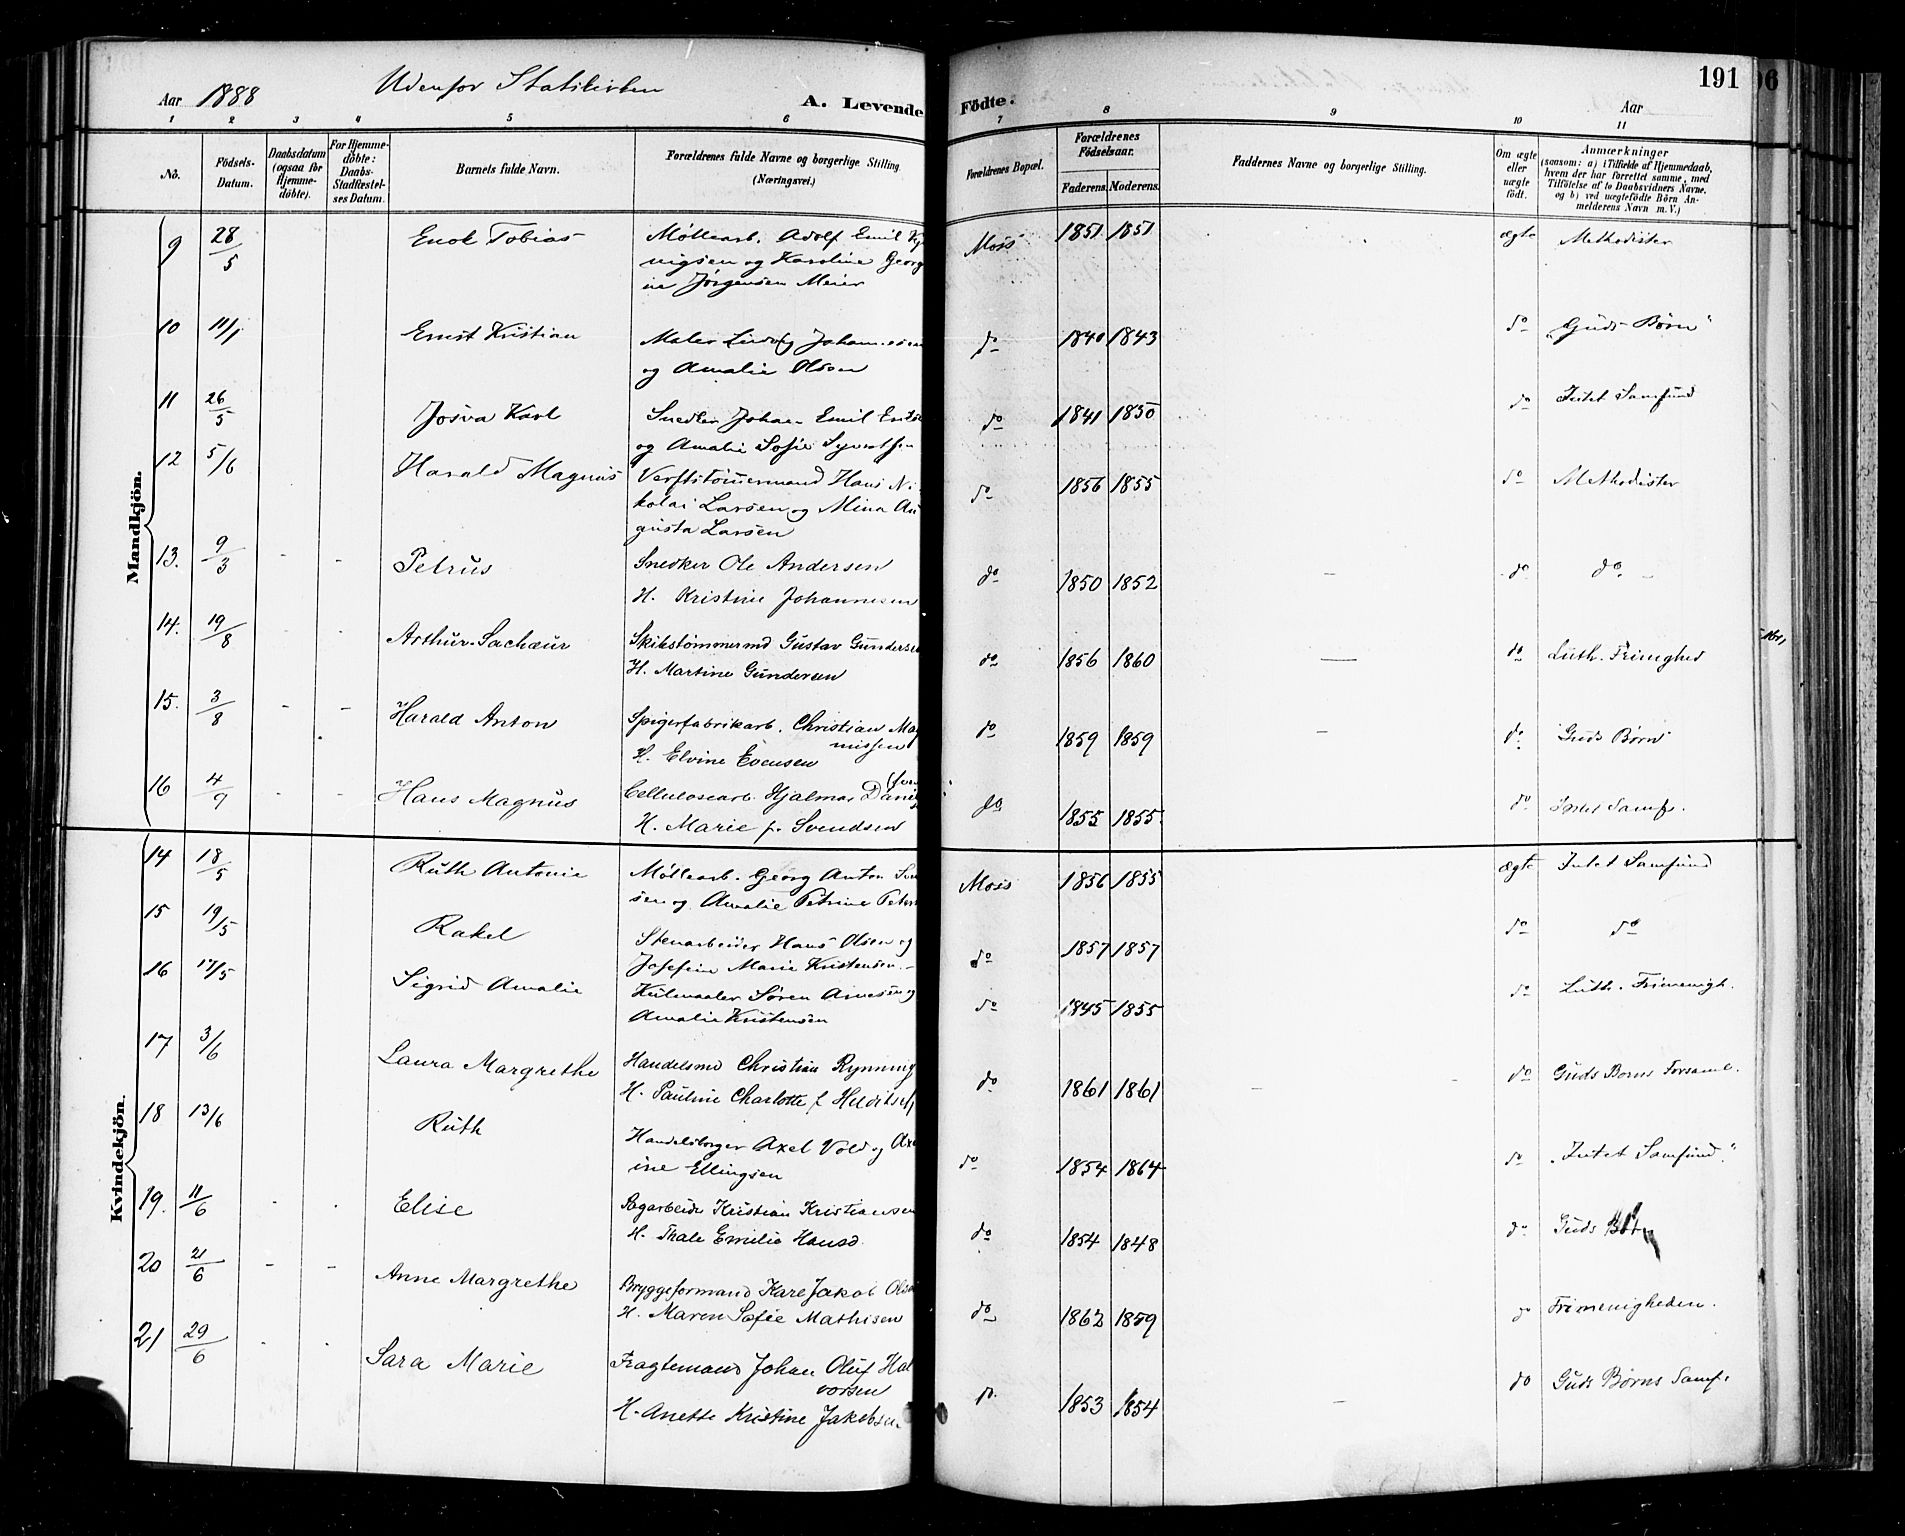 Aar 1888 Udenfor Statskirken A. Levende Födte. 191
Aar
1 2 3 4 5 6 7 8 9 10 11
No. Födsels-Datum. Daabsdatum (ogsaa for Hjemme-döbte). For Hjemme-döbte: Daabs-Stadfæstel-ses Datum. Barnets fulde Navn. Forældrenes fulde Navne og borgerlige Stilling. (Næringsvei.) Forældrenes Bopæl. Forældrenes Födselsaar. Faderens. Moderens. Faddernes Navne og borgerlige Stilling. Om ægte eller uægte födt. Anmærkninger (saasom: a) i Tilfælde af Hjemmedaab, hvem der har forrettet samme, med Tilföielse af to Daabsvidners Navne, og b) ved uægtefödte Börn An-melderens Navn m. V.)
Mandkjön.
9 28/5 Enok Tobias Møllearb. Adolf Emil
nigsen og Karoline Georg
ine Jørgensen Meier Moss 1851 1851 ægte Methodister
10 11/1 Ernst Kristian Maler Ludvig Johannesen
og Amalie Olsen do 1840 1843 do "Guds Børn"
11 26/5 Josva Karl Snedker Johan Emil
og Amalie Sofie Syvertsen do 1841 1850 do Intet Samfund
12 5/6 Harald Magnus Verftstömmermand Hans Ni
kolai Larsen og Mina Au
gusta Larsen do 1856 1855 do Methodister
13. 9/3 - - Petrus Snedker Ole Andersen
H. Kristine Johannesen do 1850 1852 - do do -
14. 19/8 Arthur Sachæur Skibstömmermd Gustav Gundersen
H. Martine Gundersen do 1856 1860 — do Luth. Frimghed
15. 3/8 - - Harald Anton Spigerfabrikarb. Christian Mag
nussen
H. Elvine Evensen do 1859 1859 - do Guds Børn
16 4/7 - - Hans Magnus Cellulosearb. Hjalmar
H. Marie f. Svendsen do 1855 1855 do Intet Samf.
Kvindekjön.
14 18/5 Ruth Antonie Møllearb. Georg Anton
sen og Amalie Petrine Moss 1856 1855 ægte Intet Samfund
15 19/5 Rakel Stenarbeider Hans Olsen og
Josefine Marie Kristensen do 1857 1857 do do
16 17/5 Sigrid Amalie Kulmaaler Søren Arnesen og
Amalie Kristensen do 1845 1855 do Luth. Frimenigh.
17 3/6 Laura Margrethe Handelsmd Christian Rynning
H. Pauline Charlotte f do 1861 1861 - - do Guds Børns Forsaml.
18 13/6 Ruth Handelsborger Axel Vold og Ax
ine Ellingsen do 1854 1864 do "Intet Samfund."
19. 11/6 - - Elise Sagarbeider Kristian Kristiansen
H. Thale Emilie Hansd. do 1854 1848 do Guds Børn
20 21/6 - - Anne Margrethe Bryggeformand Karl Jakob Olsen
H. Maren Sofie Mathisen do 1862 1859 do Frimenigheden.
21 29/6 - - Sara Marie Fragtemand Johan Oluf Hal
vorsen
H. Anette Kristine Jakobsen do 1853 1854 do Guds Børns Samf.